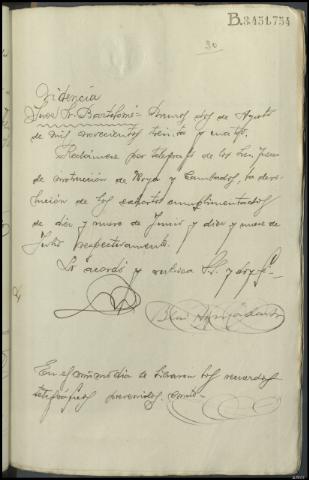 B.3451,754
30
Providencia
Juez Sr. Bartolomé = Muros dos de Agosto
de mil novecientos treinta y cuatro.
Reclámese por telégrafo de los Sres Jueces
de instrucción de Noya y Cambados, la devo-
lución de los exhortos cumplimentados
de diez y nueve de Junio y diez y nueve de
Julio respectivamente.
Lo acordó y rubrica S.S. y doy fe=
En el mismo día se libraron los recuerdos
telegráficos prevenidos. doy fe=